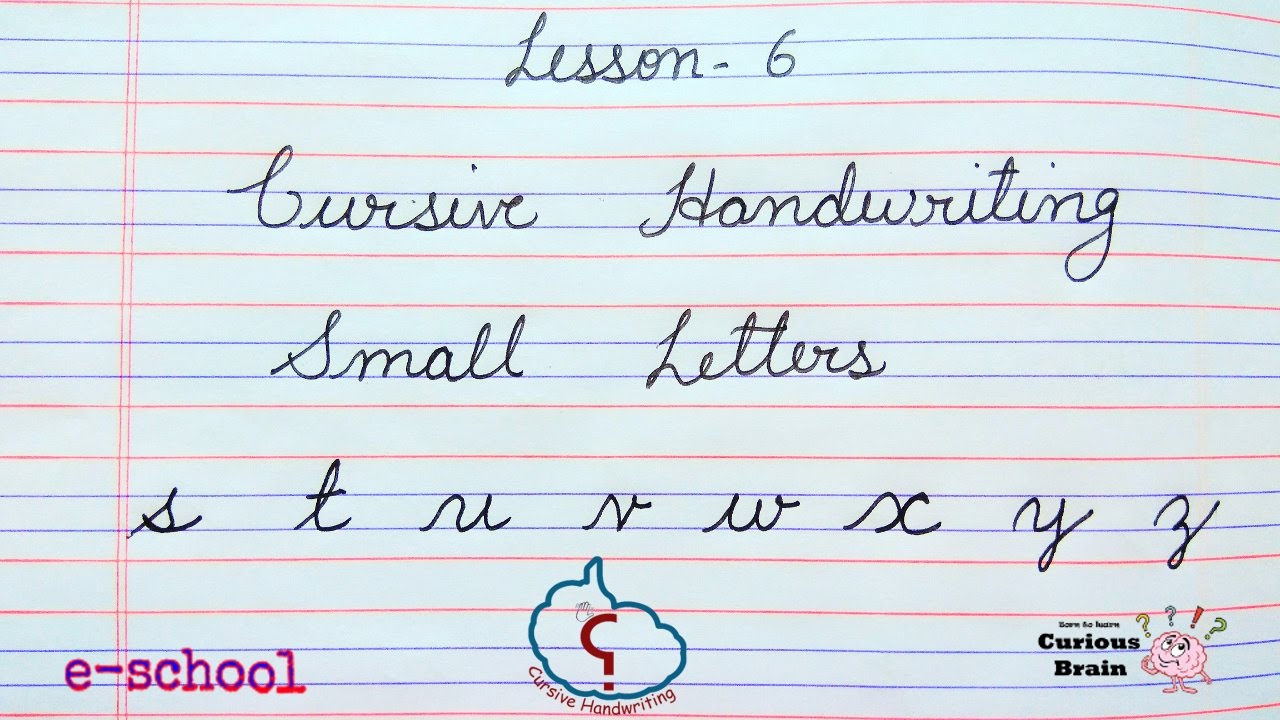 Lesson - 6
Cursive Handwriting
Small Letters
s t u v w x y z
e-school
Cursive Handwriting
Born to learn
Curious
Brain